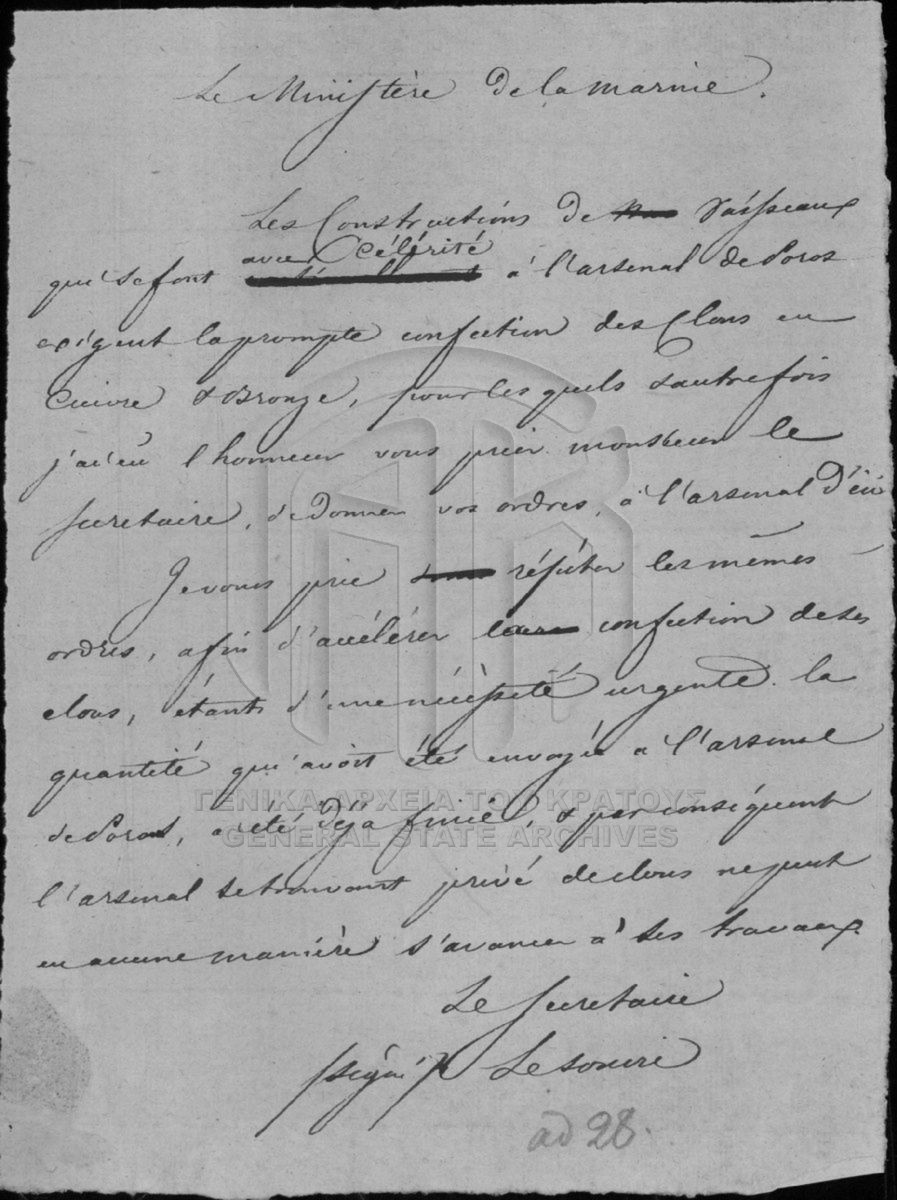 Le Ministère de la marine.
Les Constructions de Vaisseaux
avec Célérité
qui se font à l'arsenal de Poros
exigent la prompte confection des Clous en
Cuivre & Bronze, pour les quels d'autrefois
j'ai eu l'honneur vous prier monsieur le
secretaire, de donner vos ordres, à l'arsenal d'ici
Je vous prie répéter les mêmes
ordres, afin d'accélérer confection de ses
clous, étants d'une nécèssité urgente. la
quantité qu'avoit été envoyée a l'arsenal
de Poros, a été déja finie, & par conséquent
l'arsenal se trouvant privé de clous ne peut
en aucune manière s'avancer à ses travaux.
Le Secretaire
ad 28.
ΓΕΝΙΚΑ ΑΡΧΕΙΑ ΤΟΥ ΚΡΑΤΟΥΣ
GENERAL STATE ARCHIVES